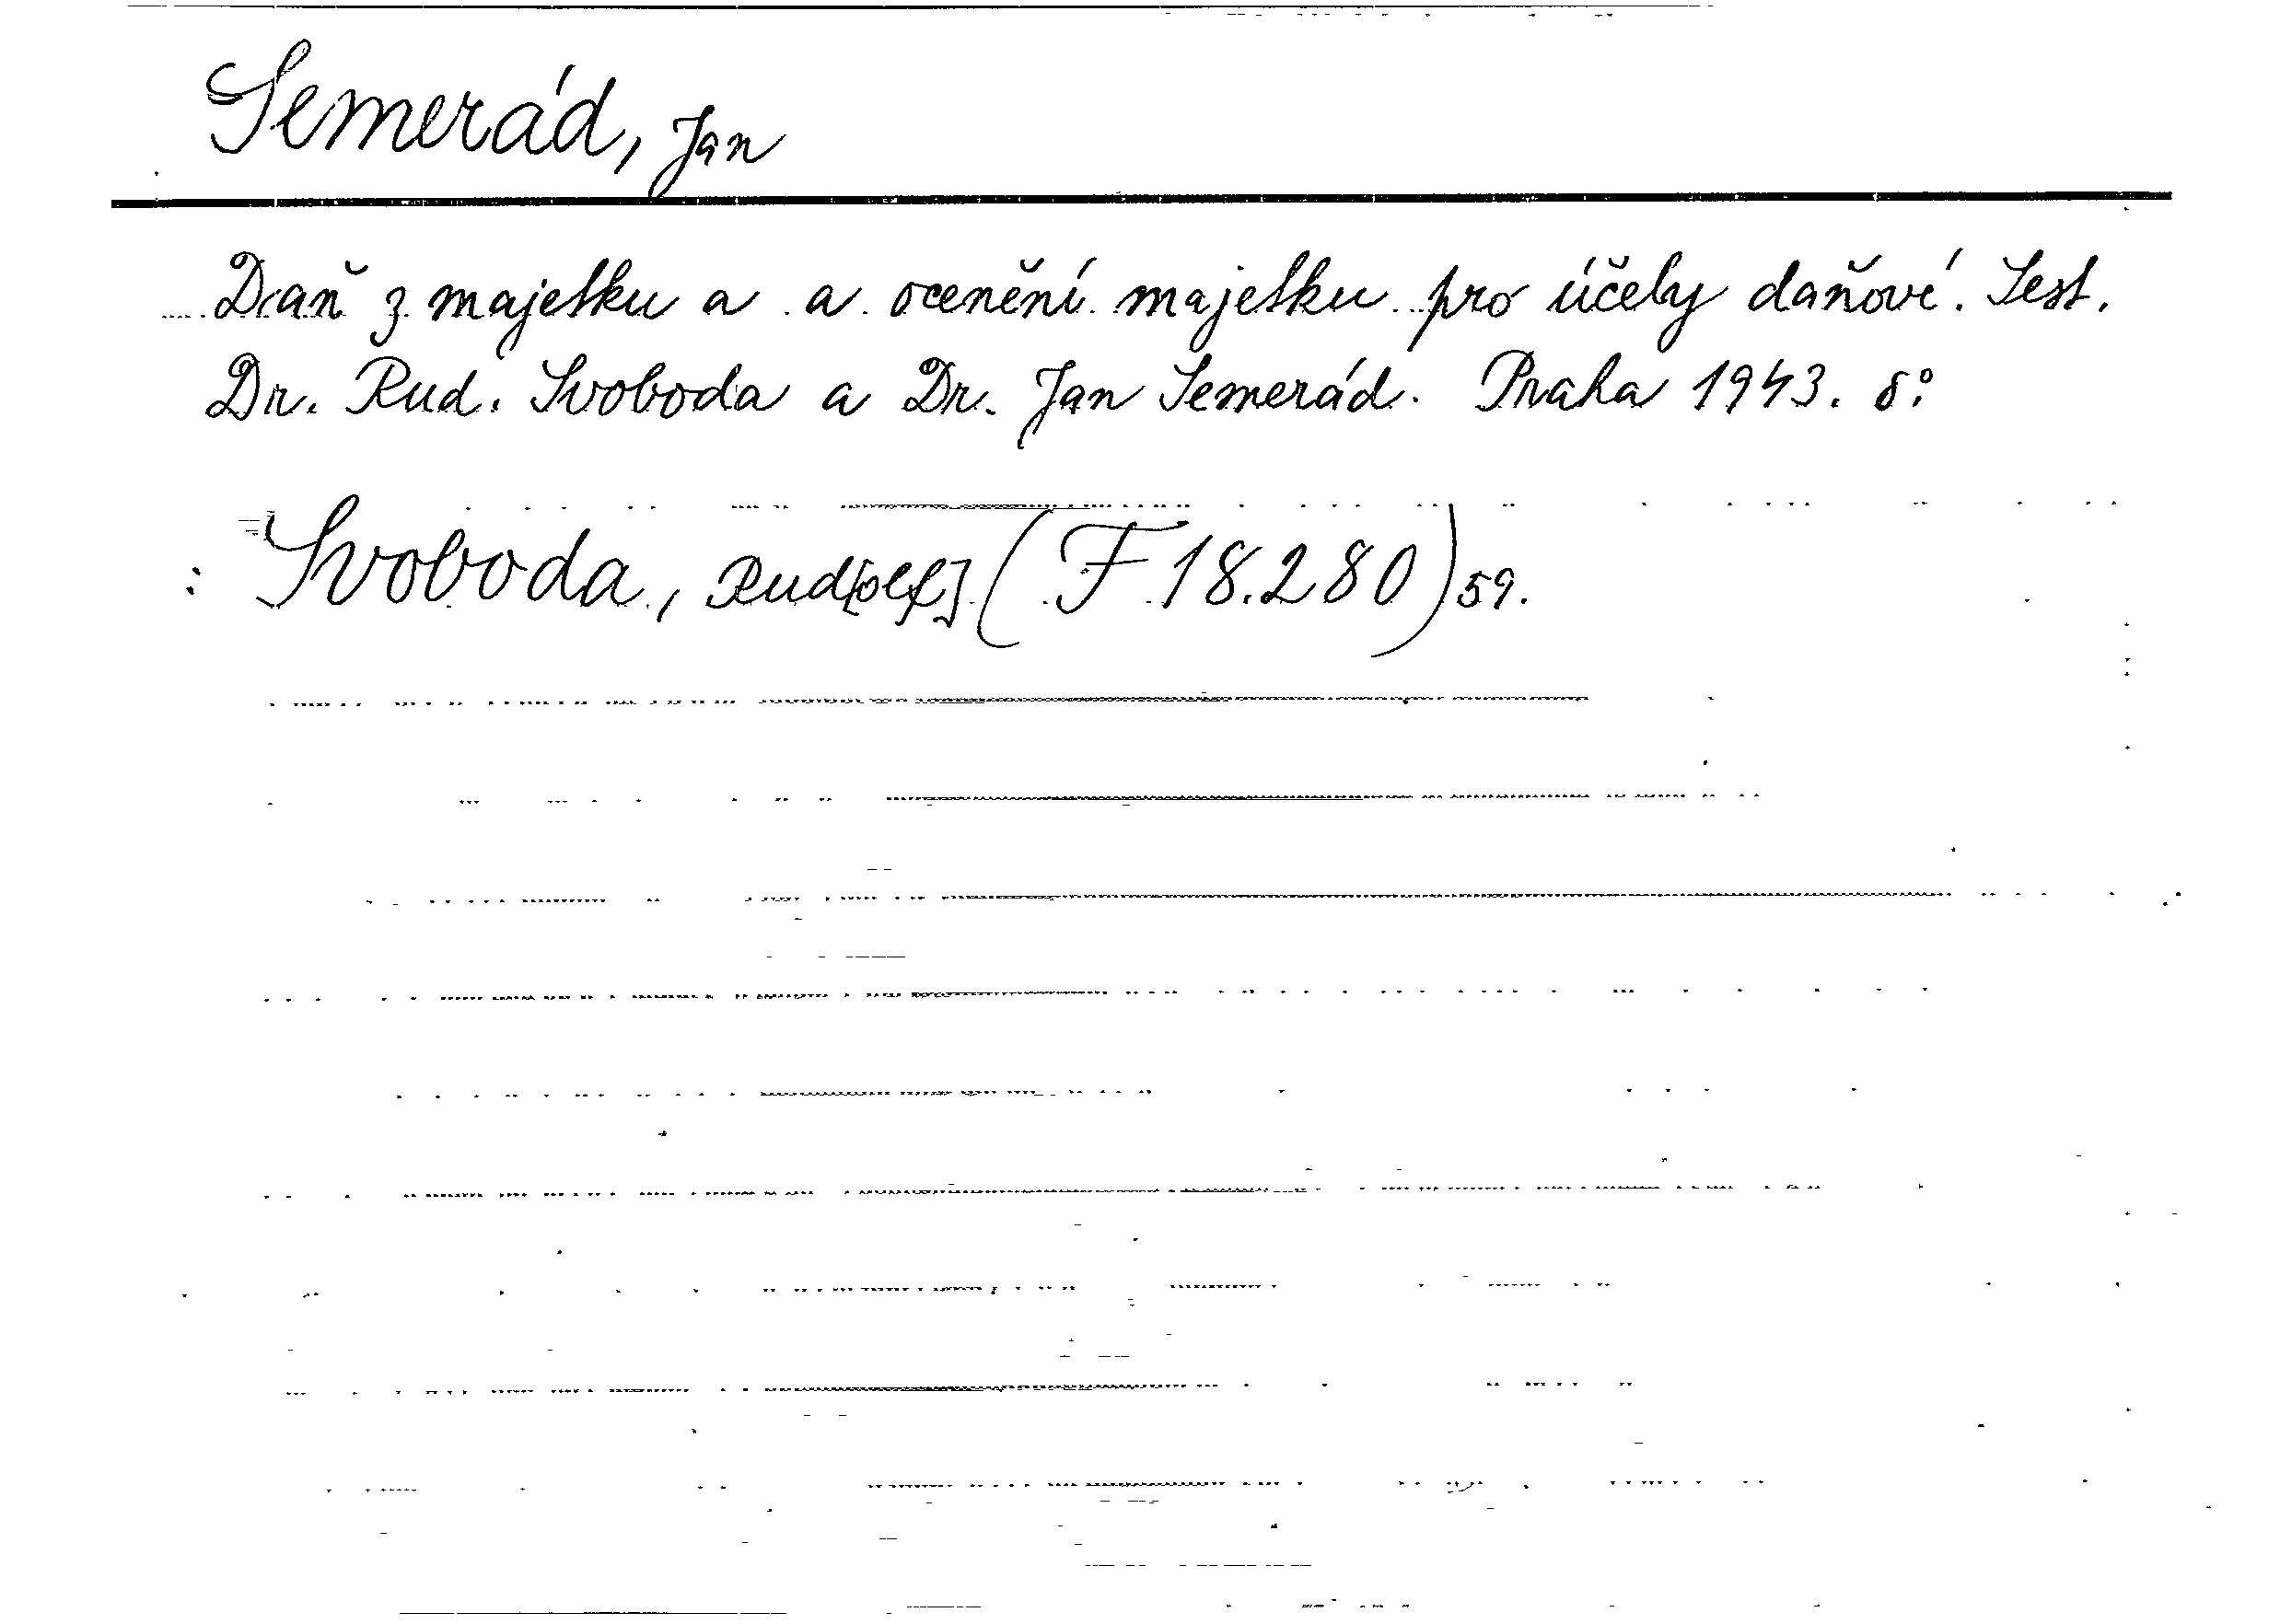 Semerád, Jan
Daň z majetku a a ocenění majetku pro účely daňové. Sest.
Dr. Rud. Svoboda a Dr. Jan Semerád. Praha 1943. 8°.
: Svoboda, Rud[olf] (F 18.280) 59.